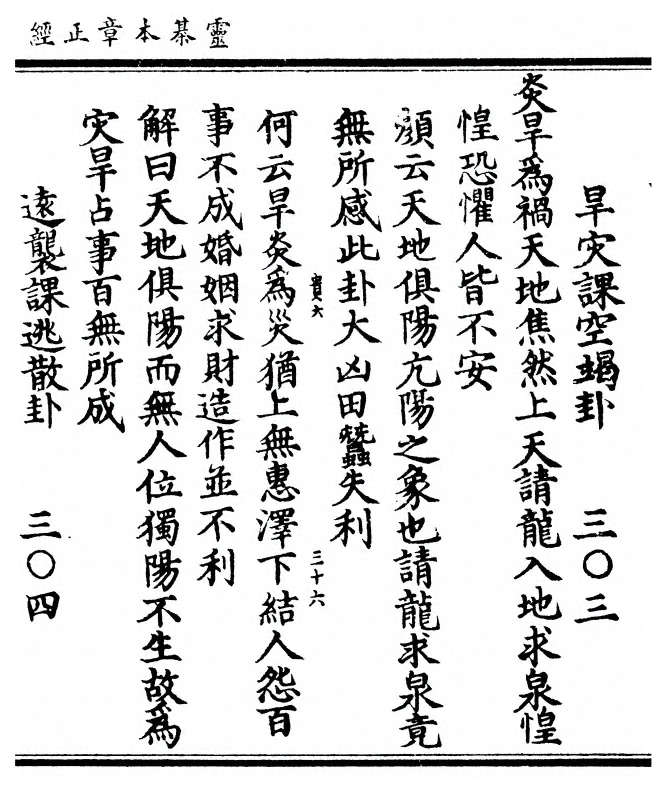 靈棊本章正經
旱灾課空竭卦　三〇三
炎旱為禍天地焦然上天請龍入地求泉惶
惶恐懼人皆不安
顏云天地俱陽亢陽之象也請龍求泉竟
無所感此卦大凶田蠶失利
何云旱炎為災猶上無惠澤下結人怨百
事不成婚姻求財造作並不利
解曰天地俱陽而無人位獨陽不生故為
灾旱占事百無所成
遠襲課逃散卦　三〇四
賁六
三十六